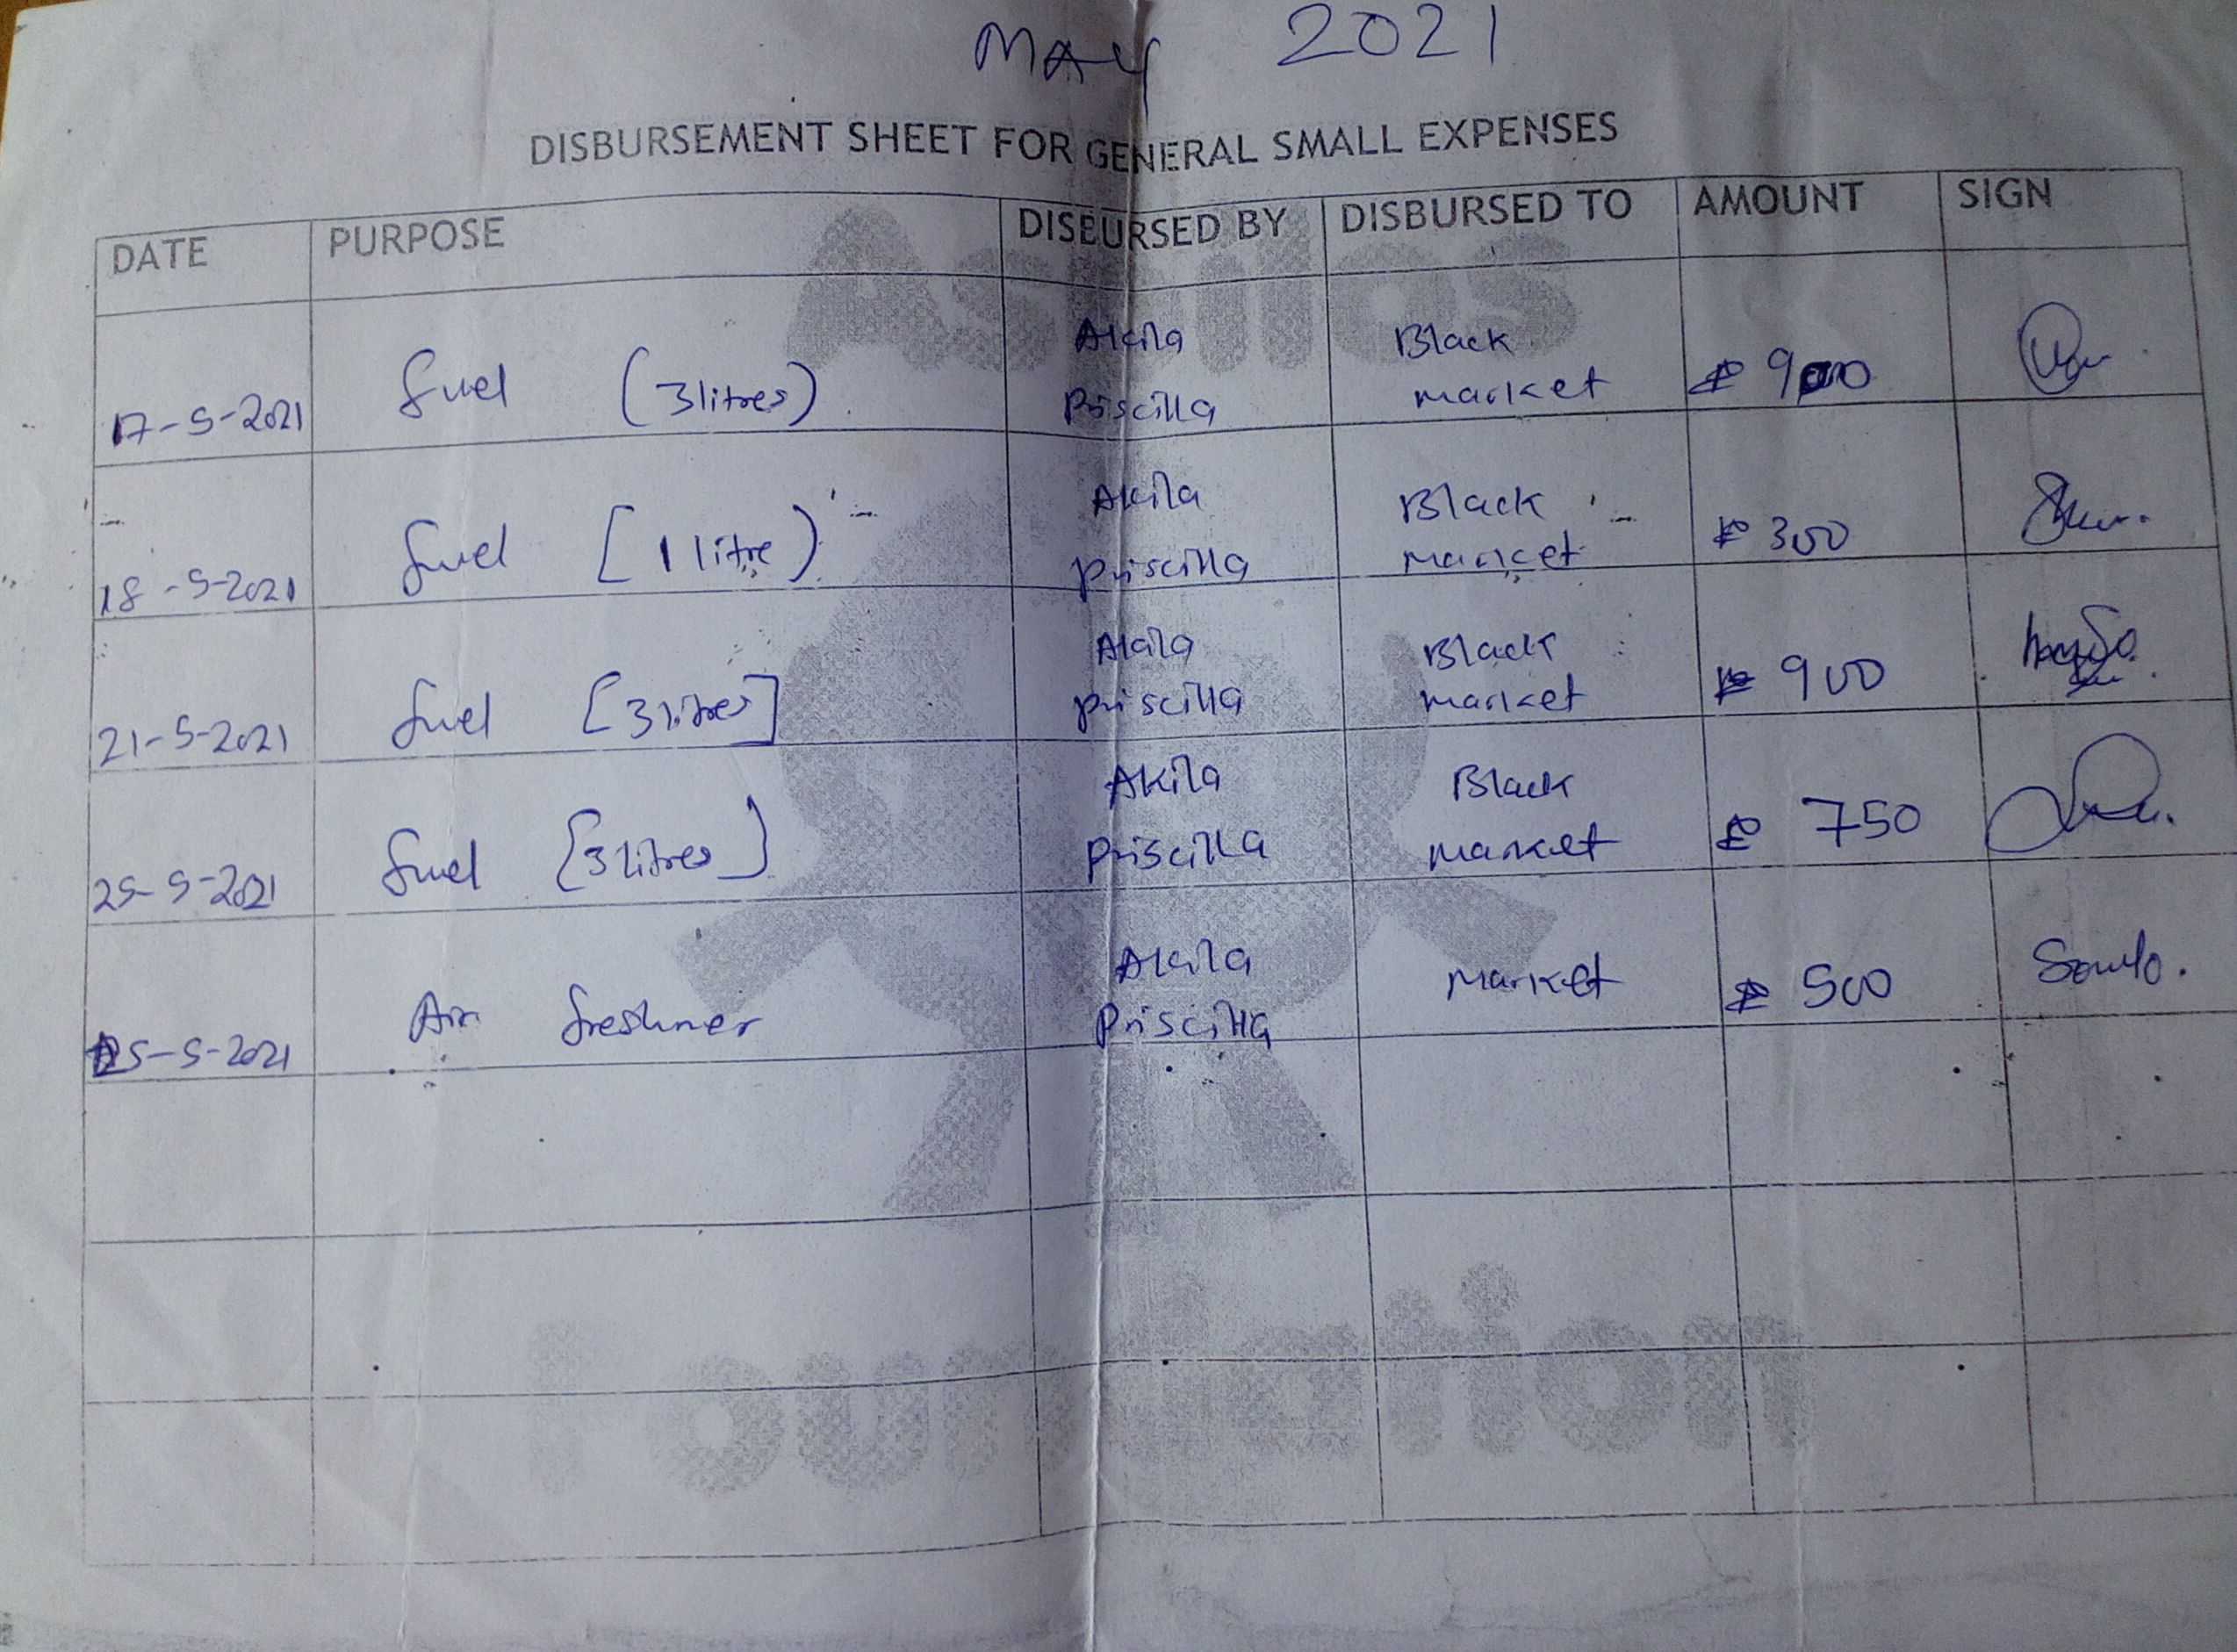 MAY 2021
DISBURSEMENT SHEET FOR GENERAL SMALL EXPENSES
DATE PURPOSE DISBURSED BY DISBURSED TO AMOUNT SIGN
Akila Black
17-5-2021 fuel (3 litres) Priscilla market ₦ 900
Akila Black
18-5-2021 fuel [1 litre) Priscilla market ₦ 300
Akila Black
21-5-2021 fuel [3 litres] Priscilla market ₦ 900
Akila Black
25-5-2021 fuel [3 litres] Priscilla market ₦ 750
Akila
25-5-2021 Air freshner Priscilla market ₦ 500
Foundation